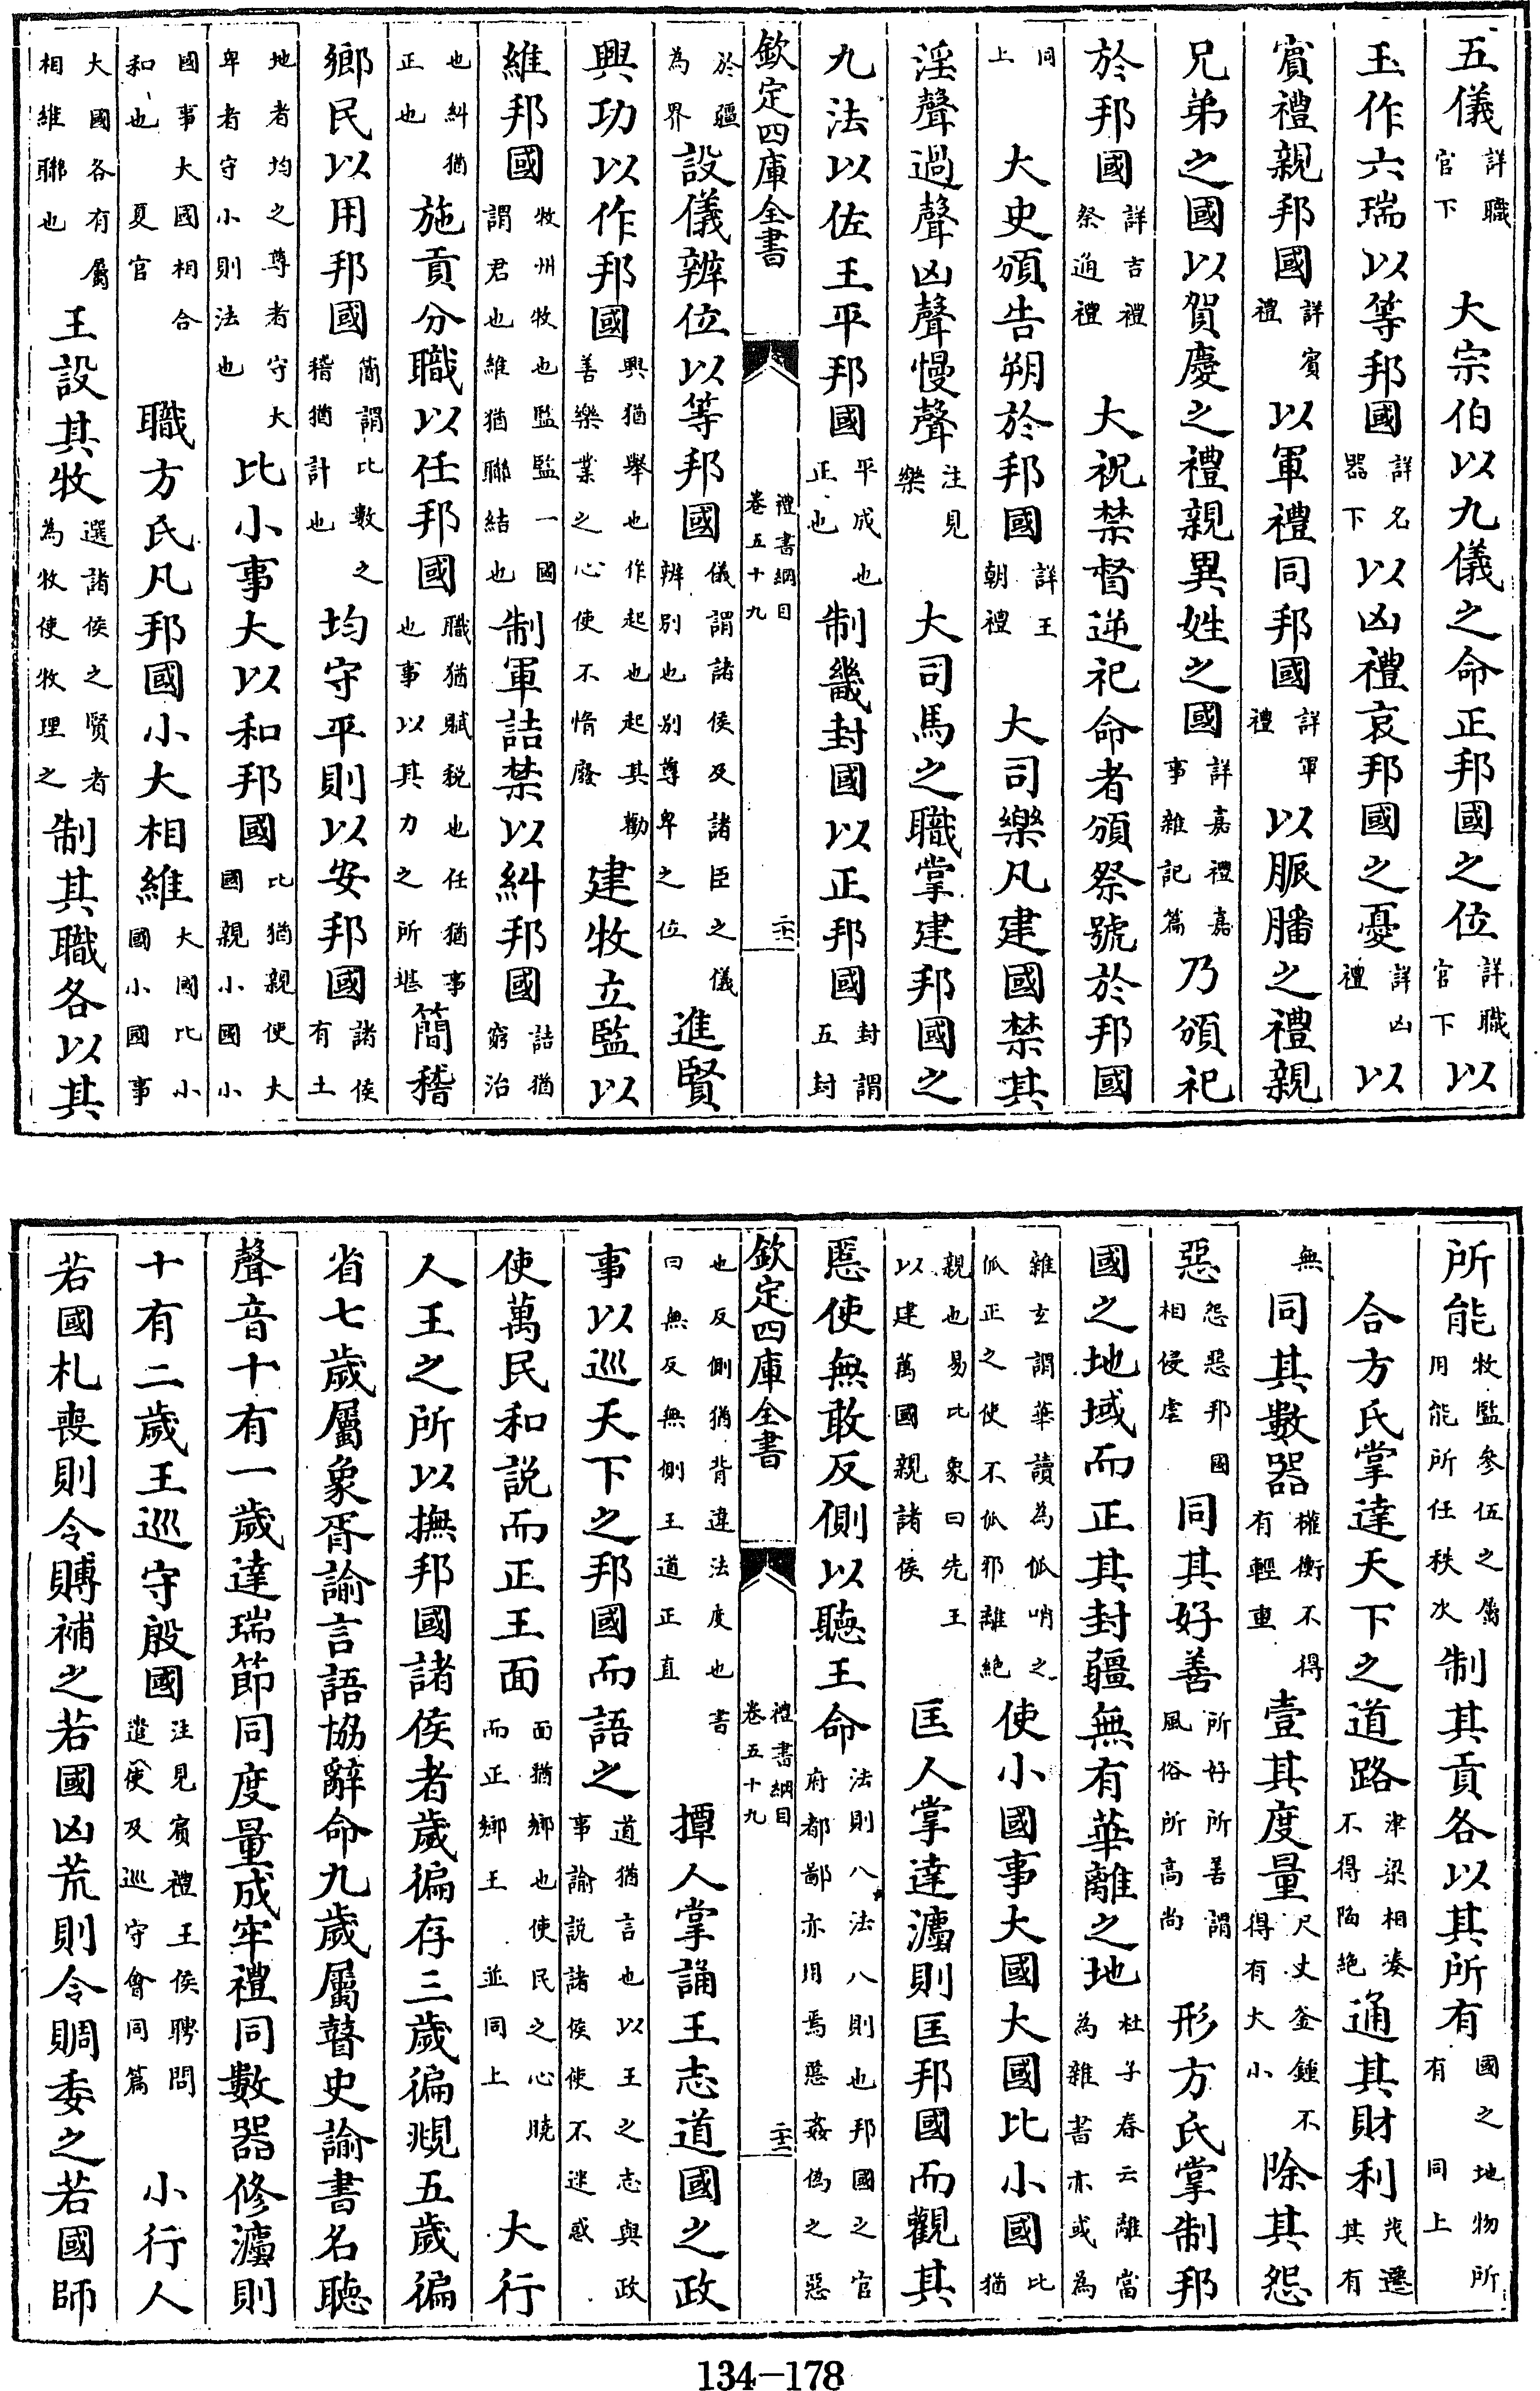 五儀詳職官下　大宗伯以九儀之命正邦國之位詳職官下以
玉作六瑞以等邦國詳名器下以凶禮哀邦國之憂詳凶禮以
賓禮親邦國詳賓禮以軍禮同邦國詳軍禮以脤膰之禮親
兄弟之國以賀慶之禮親異姓之國詳嘉禮嘉事雜記篇乃頒祀
於邦國詳吉禮祭通禮　大祝禁督逆祀命者頒祭號於邦國
同上　大史頒告朔於邦國詳王朝禮　大司樂凡建國禁其
淫聲過聲凶聲慢聲注見樂　大司馬之職掌建邦國之
九法以佐王平邦國平成也正也制畿封國以正邦國封謂五封
欽定四庫全書　禮書綱目卷五十九　二十一
於疆為界設儀辨位以等邦國儀謂諸侯及諸臣之儀辨別也別尊卑之位進賢
興功以作邦國興猶舉也作起也起其勸善樂業之心使不惰廢建牧立監以
維邦國牧州牧也監監一國謂君也維猶聯結也制軍詰禁以糾邦國詰猶窮治
也糾猶正也施貢分職以任邦國職猶賦税也任猶事也事以其力之所堪簡稽
鄉民以用邦國簡謂比數之稽猶計也均守平則以安邦國諸侯有土
地者均之尊者守大卑者守小則法也比小事大以和邦國比猶親使大國親小國小
國事大國相合和也夏官　職方氏凡邦國小大相維大國比小國小國事
大國各有屬相維聯也王設其牧選諸侯之賢者為牧使牧理之制其職各以其
所能牧監參伍之屬用能所任秩次制其貢各以其所有國之地物所有　同上
合方氏掌達天下之道路津梁相湊不得陷絕通其財利茂遷其有
無同其數器權衡不得有輕重壹其度量尺丈釜鍾不得有大小除其怨
惡怨惡邦國相侵虐同其好善所好所善謂風俗所高尚　形方氏掌制邦
國之地域而正其封疆無有華離之地杜子春云離當為雜書亦或為
雜玄謂華讀為㼌哨之㼌正之使不㼌邪離絕使小國事大國大國比小國比猶
親也易比象曰先王以建萬國親諸侯　匡人掌達灋則匡邦國而觀其
慝使無敢反側以聽王命法則八法八則也邦國之官府都鄙亦用焉慝姦偽之惡
欽定四庫全書　禮書綱目卷五十九　二十二
也反側猶背違法度也書曰無反無側王道正直　撢人掌誦王志道國之政
事以巡天下之邦國而語之道猶言也以王之志與政事諭説諸侯使不迷惑
使萬民和説而正王面面猶鄉也使民之心曉而正鄉王　並同上　大行
人王之所以撫邦國諸侯者歲徧存三歲徧覜五歲徧
省七歲屬象胥諭言語協辭命九歲屬瞽史諭書名聽
聲音十有一歲達瑞節同度量成牢禮同數器修灋則
十有二歲王巡守殷國注見賓禮王侯聘問遣使及巡守會同篇　小行人
若國札喪則令賻補之若國凶荒則令賙委之若國師
134-178